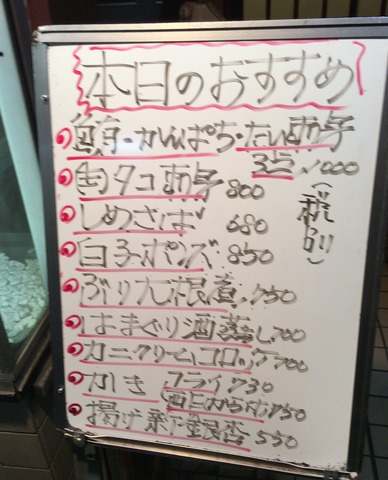 本日のおすすめ
鮪・かんぱち・たい刺身
3点 1000
(税別)
タコ刺身 800
しめさば 680
白子ポンズ 850
ぶり大根煮 750
はまぐり酒蒸し 700
カニクリームコロッケ 700
かき フライ 730
西巨からげ 750
揚げ 銀杏 550